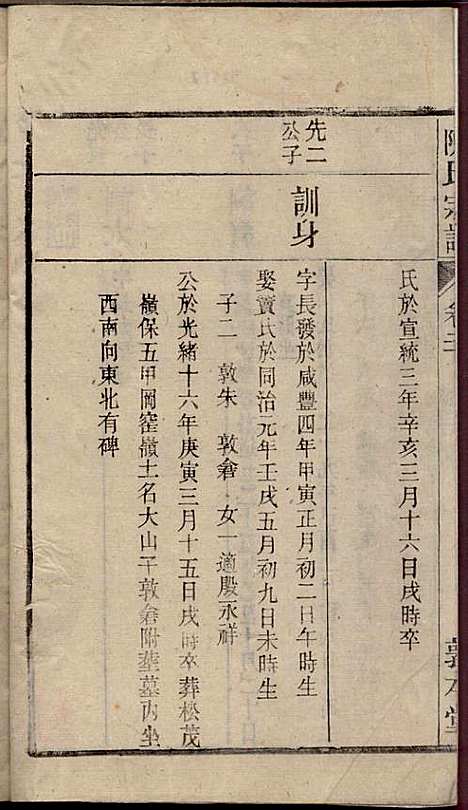 陳氏宗譜 卷二
敦本堂
氏於宣統三年辛亥三月十六日戌時卒
先二
公子
訓身
字長發於咸豐四年甲寅正月初二日午時生
娶賈氏於同治元年壬戌五月初九日未時生
子二 敦朱 敦倉 女一適殷永祥
公於光緒十六年庚寅三月十五日戌時卒葬松茂
嶺保五甲岡窑嶺土名大山子敦倉附塟墓丙坐
西南向東北有碑